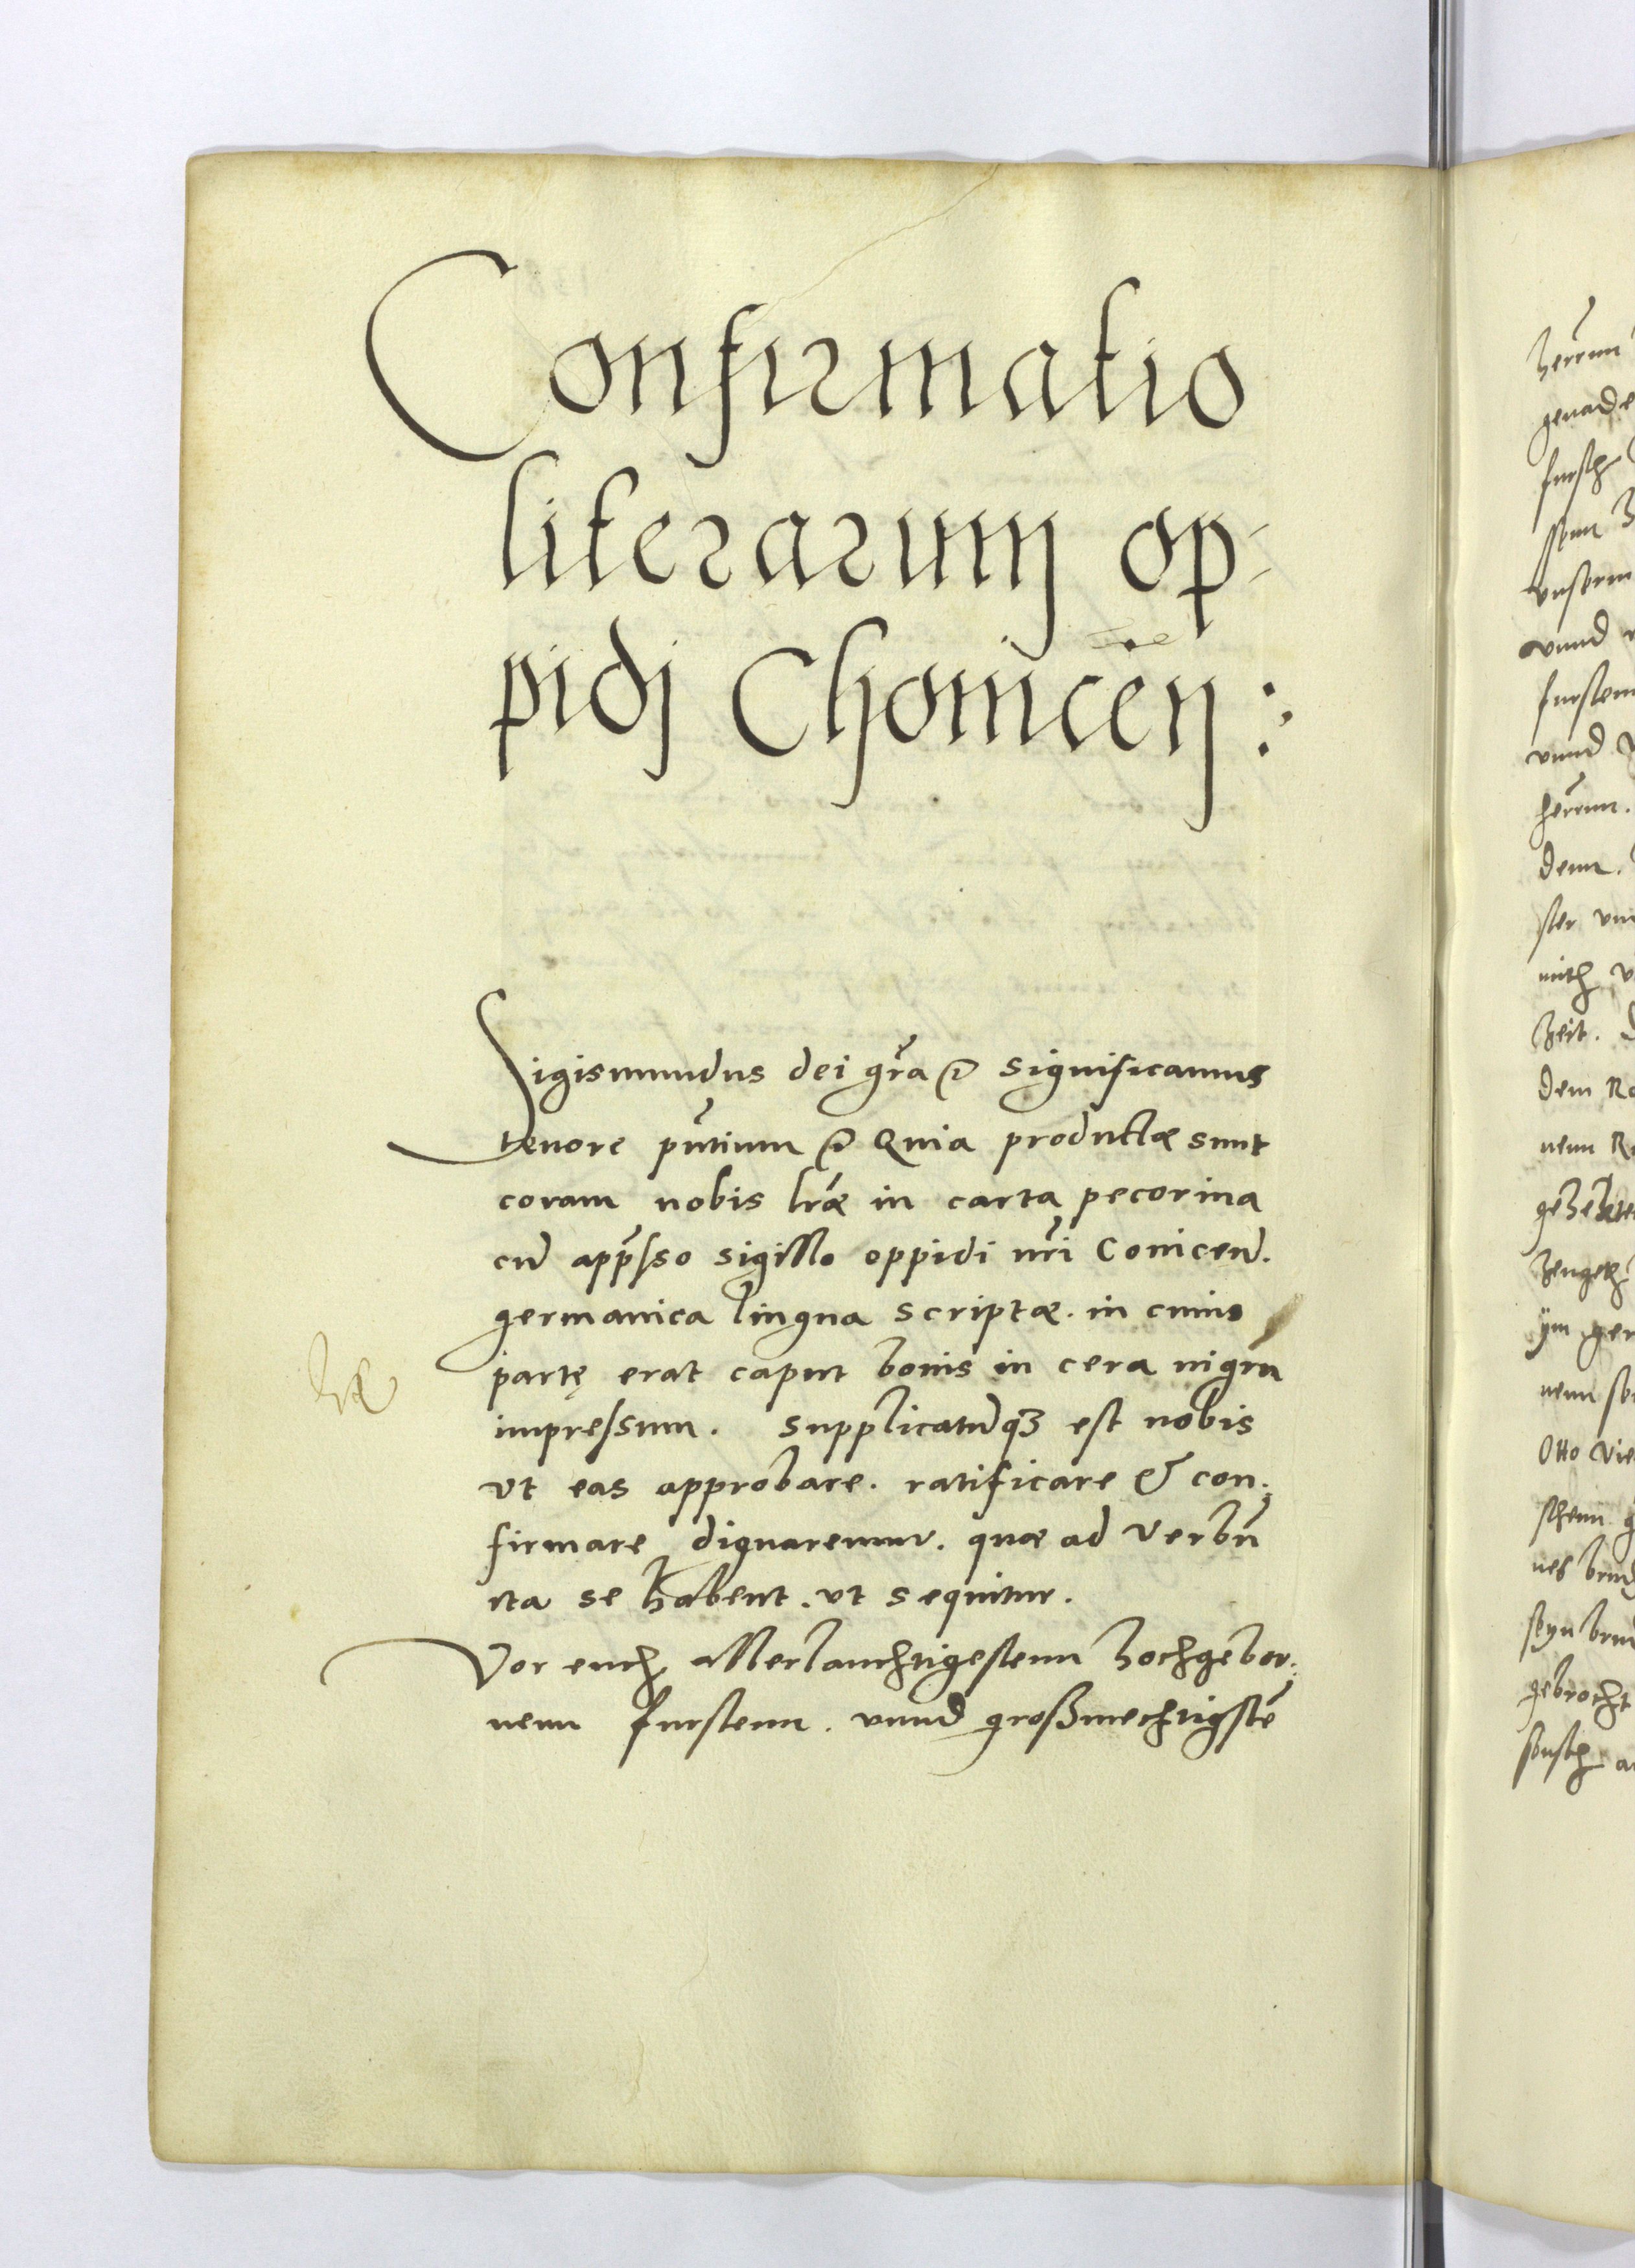 Confirmatio
literarum op-
pidj Chonicen̄ :
Sigismundus dei gr̃a etc significamus
tenore pñtium etc Quia productæ sunt
coram nobis lr̃æ in carta pecorina
cū app̃sso sigillo oppidi nr̃i Conicen̄.
germanica lingua scriptæ. in cuius
partę erat caput bovis in cera nigra
impressum. supplicatūqꝫ est nobis
ut eas approbare. ratificare & con-
firmare dignaremur. quæ ad verbū
ita se habent. ut sequitur.
Vor euch allerlauchtigestenn hochgebor-
nenn furstenn. vnnd großmechtigstē
herrenn
genade
vnserm
vnnd
furstenn
vnnd
herrenn.
denn.
ster
mith
Zeit.
dem
nenn
nenn
Otto
gebrocht